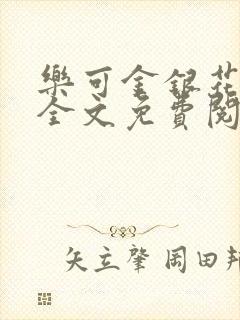 樂可金銀花
全文免費閱
矢立肇 岡田邦